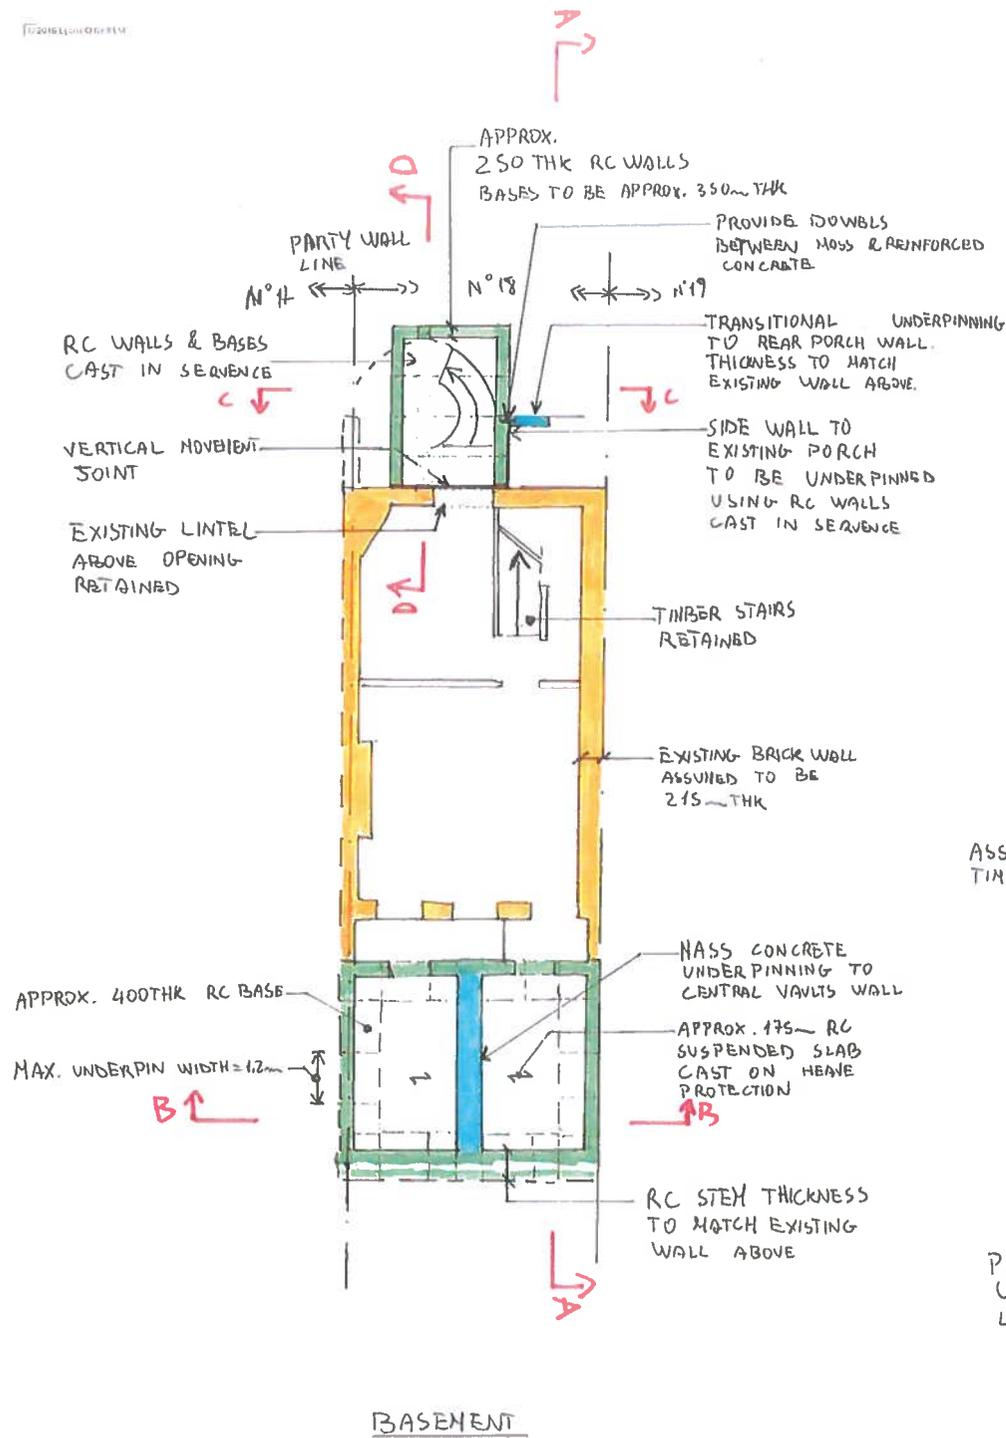 A
APPROX.
250 THK RC WALLS
BASES TO BE APPROX. 350mm THK
D
PROVIDE DOWELS
BETWEEN MASS & REINFORCED
CONCRETE
PARTY WALL
LINE
N° 18
N°19
TRANSITIONAL UNDERPINNING
TO REAR PORCH WALL.
THICKNESS TO MATCH
EXISTING WALL ABOVE.
RC WALLS & BASES
CAST IN SEQUENCE
C
C
SIDE WALL TO
EXISTING PORCH
TO BE UNDERPINNED
USING RC WALLS
CAST IN SEQUENCE
VERTICAL MOVEMENT
JOINT
EXISTING LINTEL
ABOVE OPENING
RETAINED
D
TIMBER STAIRS
RETAINED
EXISTING BRICK WALL
ASSUMED TO BE
215mm THK
ASS
TIM
MASS CONCRETE
UNDERPINNING TO
CENTRAL VAULTS WALL
APPROX. 400THK RC BASE
APPROX. 175mm RC
SUSPENDED SLAB
CAST ON HEAVE
PROTECTION
MAX. UNDERPIN WIDTH = 1.2m
B
B
RC STEM THICKNESS
TO MATCH EXISTING
WALL ABOVE
A
P
U
L
BASEMENT